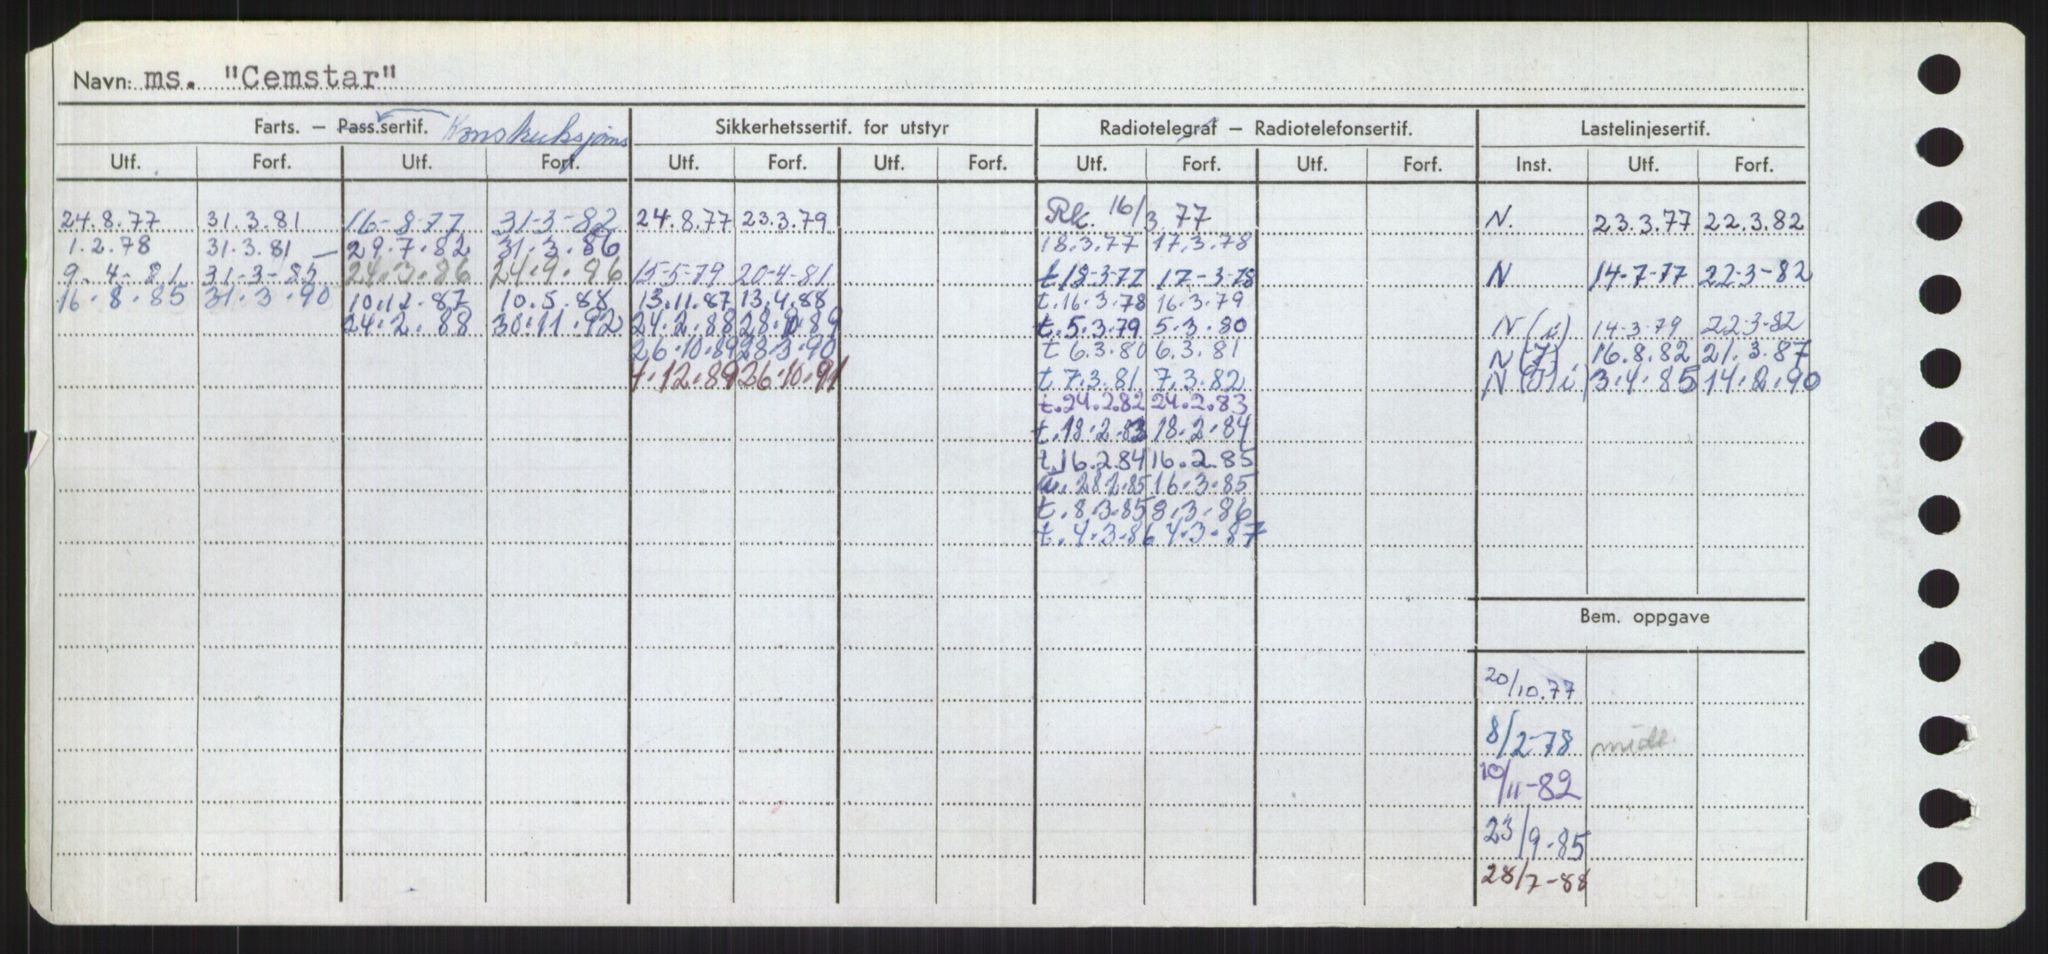 Navn: ms. "Cemstar"
Farts. – Pass.sertif. Konstruksjons Sikkerhetssertif. for utstyr Radiotelegraf – Radiotelefonsertif. Lastelinjesertif.
Utf. Forf. Utf. Forf. Utf. Forf. Utf. Forf. Utf. Forf. Utf. Forf. Inst. Utf. Forf.
24.8.77 31.3.81 16-8-77 31-3-82 24.8.77 23.3.79 Rk. 16/3.77 N. 23.3.77 22.3.82
1.2.78 31.3.81 – 29.7.82 31.3.86 18.3.77 17.3.78
9-4-81 31-3-85 24.3.86 24.9.86 15-5-79 20-4-81 t.18-3-77 17-3-78 N 14-7-77 22-3-82
16.8.85 31.3.90 10.12.87 10.5.88 13.11.87 13.4.88 t.16.3.78 16.3.79
24.2.88 30.11.92 24.2.88 28.10.89 t.5.3.79 5.3.80 N(i) 14-3-79 22-3-82
26.10.89 28.3.90 t 6.3.80 6.3.81 N(J). 16.8.82 21.3.87
7.12.89 26.10.91 t.7.3.81 7.3.82 N(J)i) 3.4.85 14.2.90
t.24.2.82 24.2.83
t.18.2.83 18.2.84
t.16.2.84 16.2.85
28.2.85 16.3.85
t.8.3.85 8.3.86
t.4.3.86 4.3.87
Bem. oppgave
20/10.77
8/2-78 midl.
10/11-82
23/9.85
28/7-88